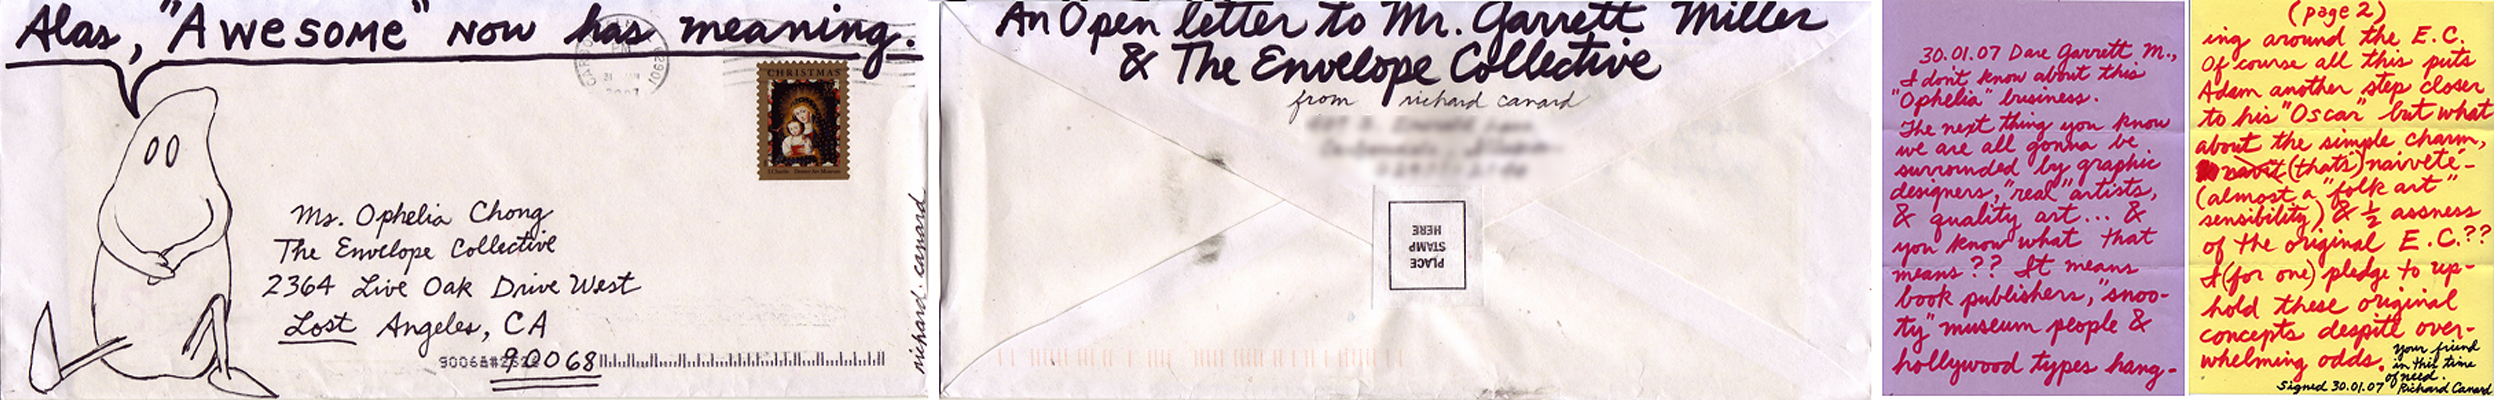 Alas, "Awesome" now has meaning.
31
2007
CHRISTMAS
Denver Art Museum
Ms. Ophelia Chong
The Envelope Collective
2364 Live Oak Drive West
Lost Angeles, CA
90068
richard canard
An Open letter to Mr. Garrett Miller
& The Envelope Collective
from richard canard
PLACE
STAMP
HERE
30.01.07 Dare Garrett M.,
I dont know about this
"Ophelia" business.
The next thing you know
we are all gonna be
surrounded by graphic
designers, "real" artists,
& quality art... &
you know what that
means?? It means
book publishers, "snoo-
ty" museum people &
hollywood types hang-
(page 2)
ing around the E.C.
Of course all this puts
Adam another step closer
to his "Oscar" but what
about the simple charm,
(thats) naiveté-
(almost a "folk art"
sensibility) & ½ assness
of the original E.C.??
I (for one) pledge to up-
hold these original
concepts despite over-
whelming odds.
your friend
in this time
of need.
Signed 30.01.07 Richard Canard